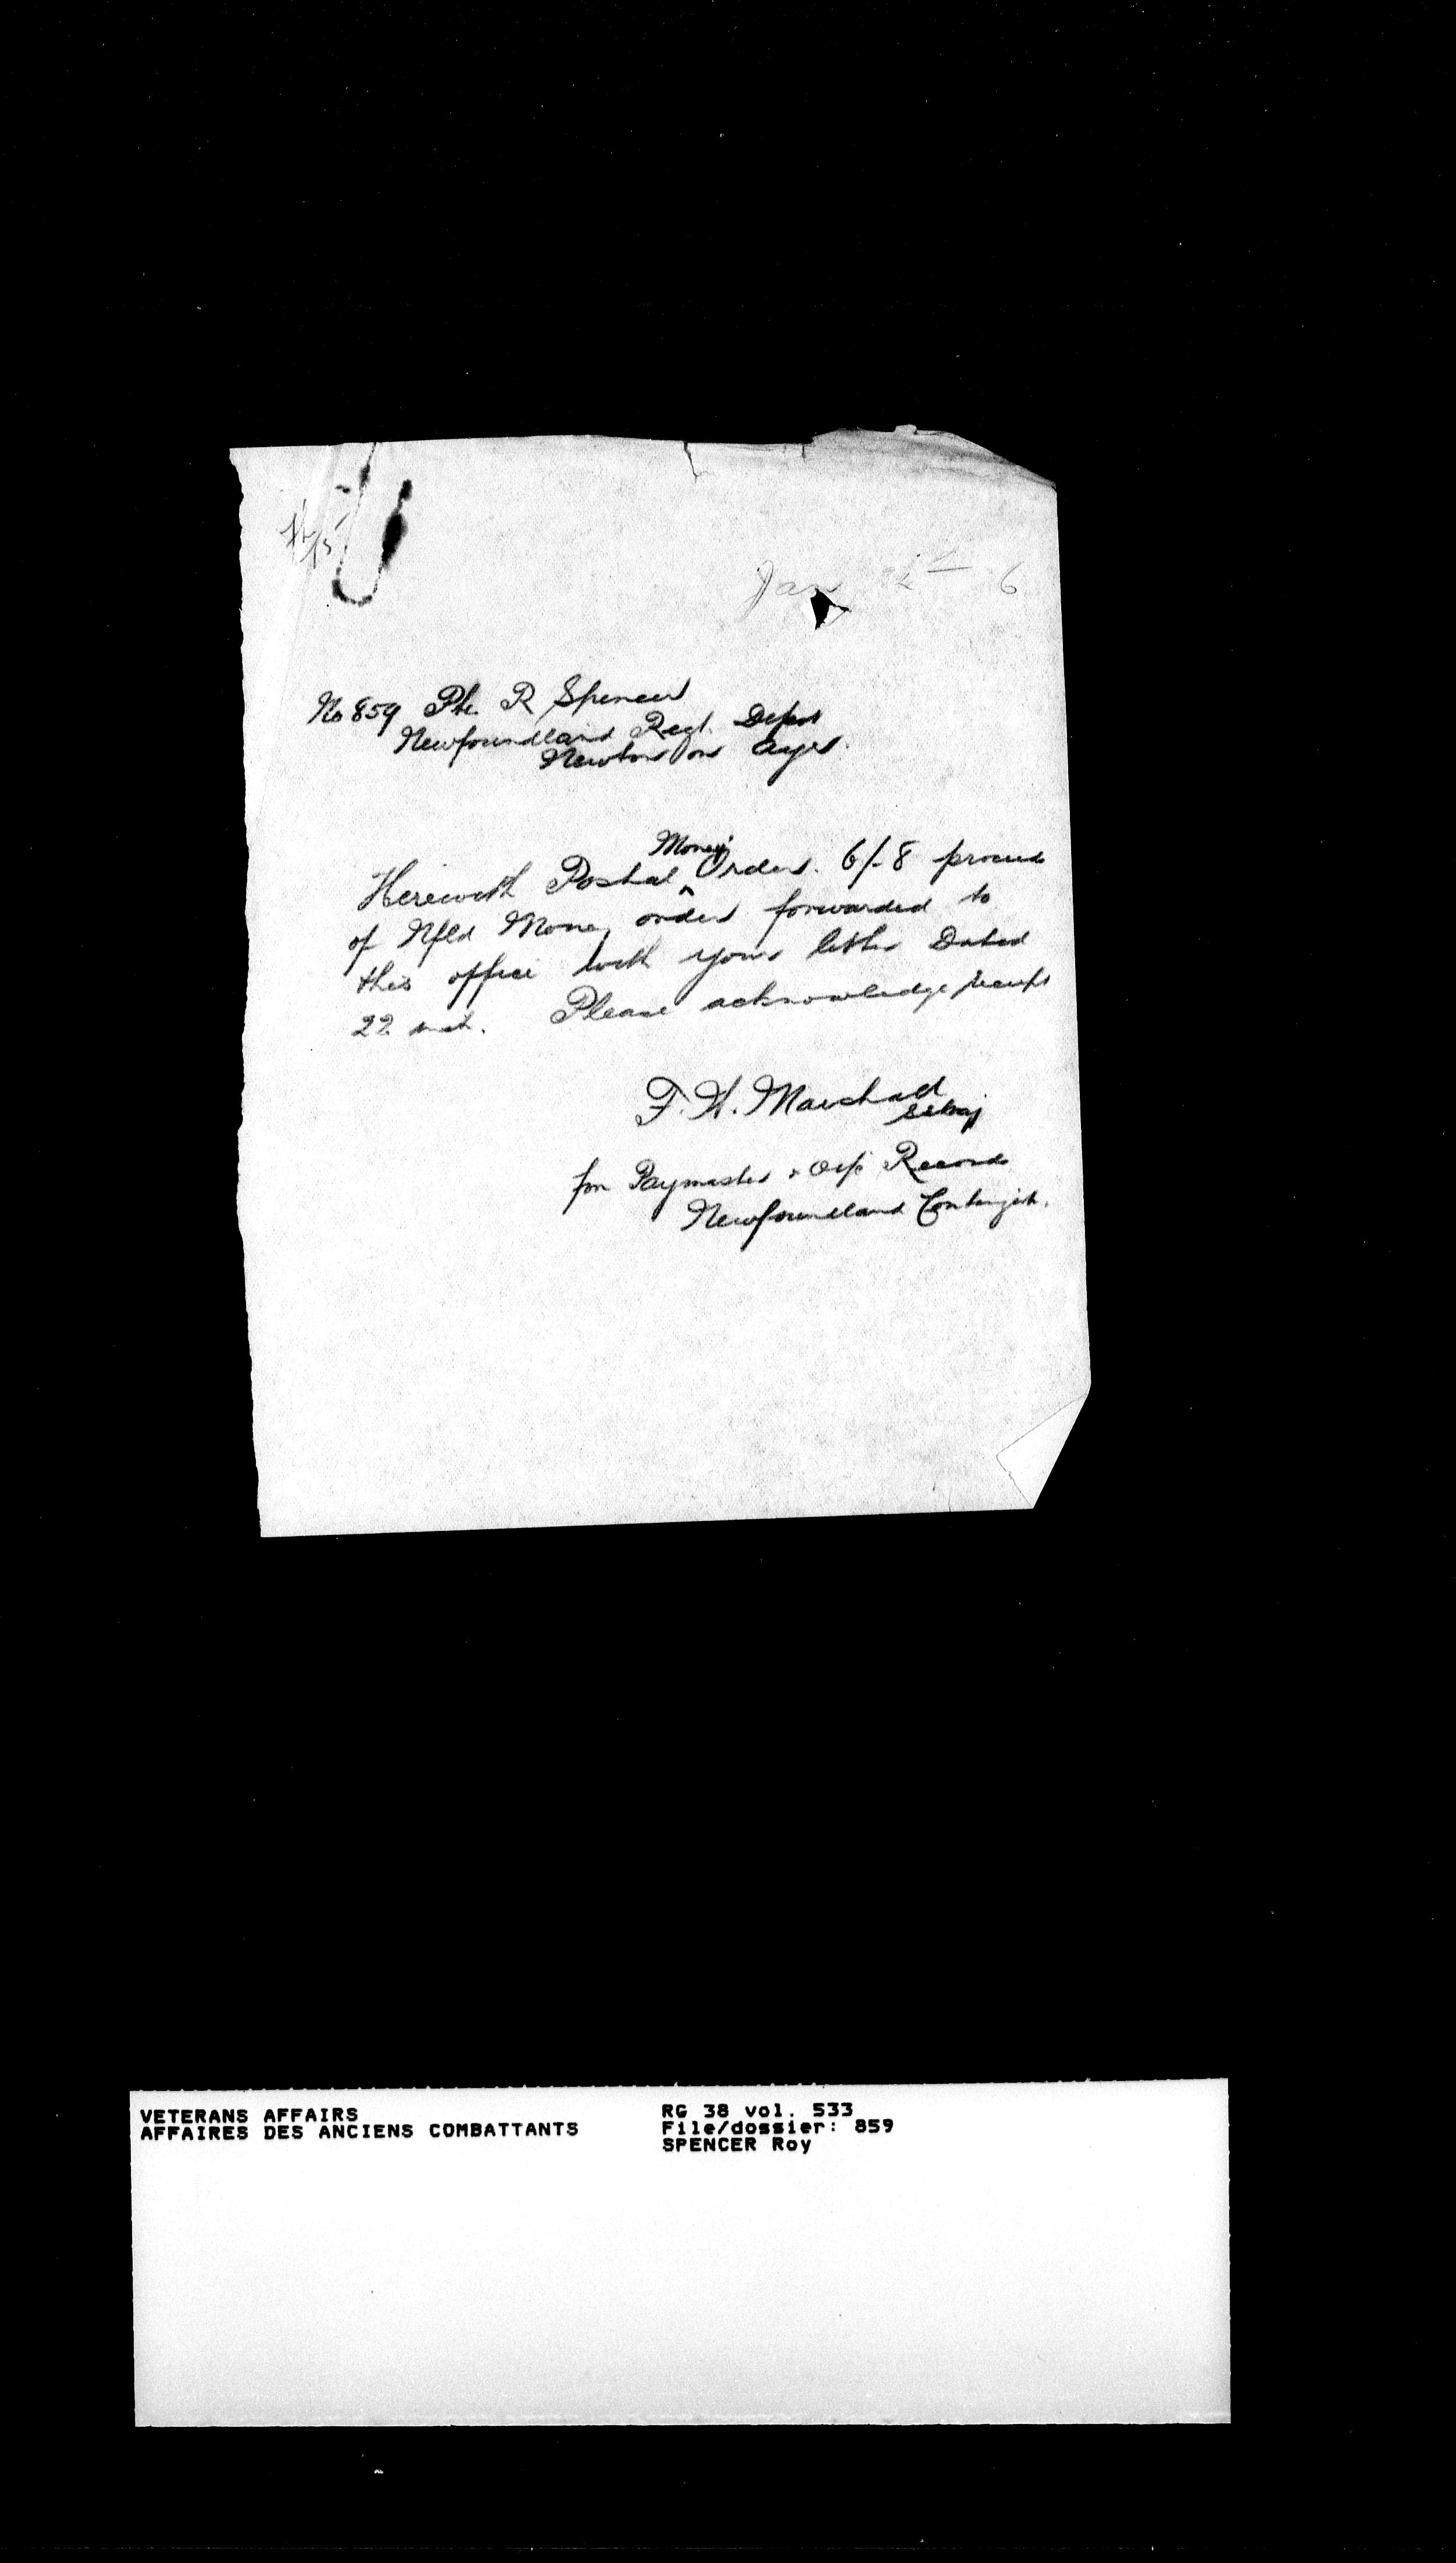 Jan 6
No 859 Pte. R Spencer
Newfoundland Regt. Depot
Newton on Ayr.
Money
Herewith Postal ^ Order. 6/-8 proceeds
of Nfld Money order forwarded to
this office with your letter Dated
22 inst. Please acknowledge receipt
F. H. Marshall
for Paymaster & O i/c Records
Newfoundland Contingent.
VETERANS AFFAIRS
AFFAIRES DES ANCIENS COMBATTANTS
RG 38 vol. 533
File/dossier: 859
SPENCER Roy